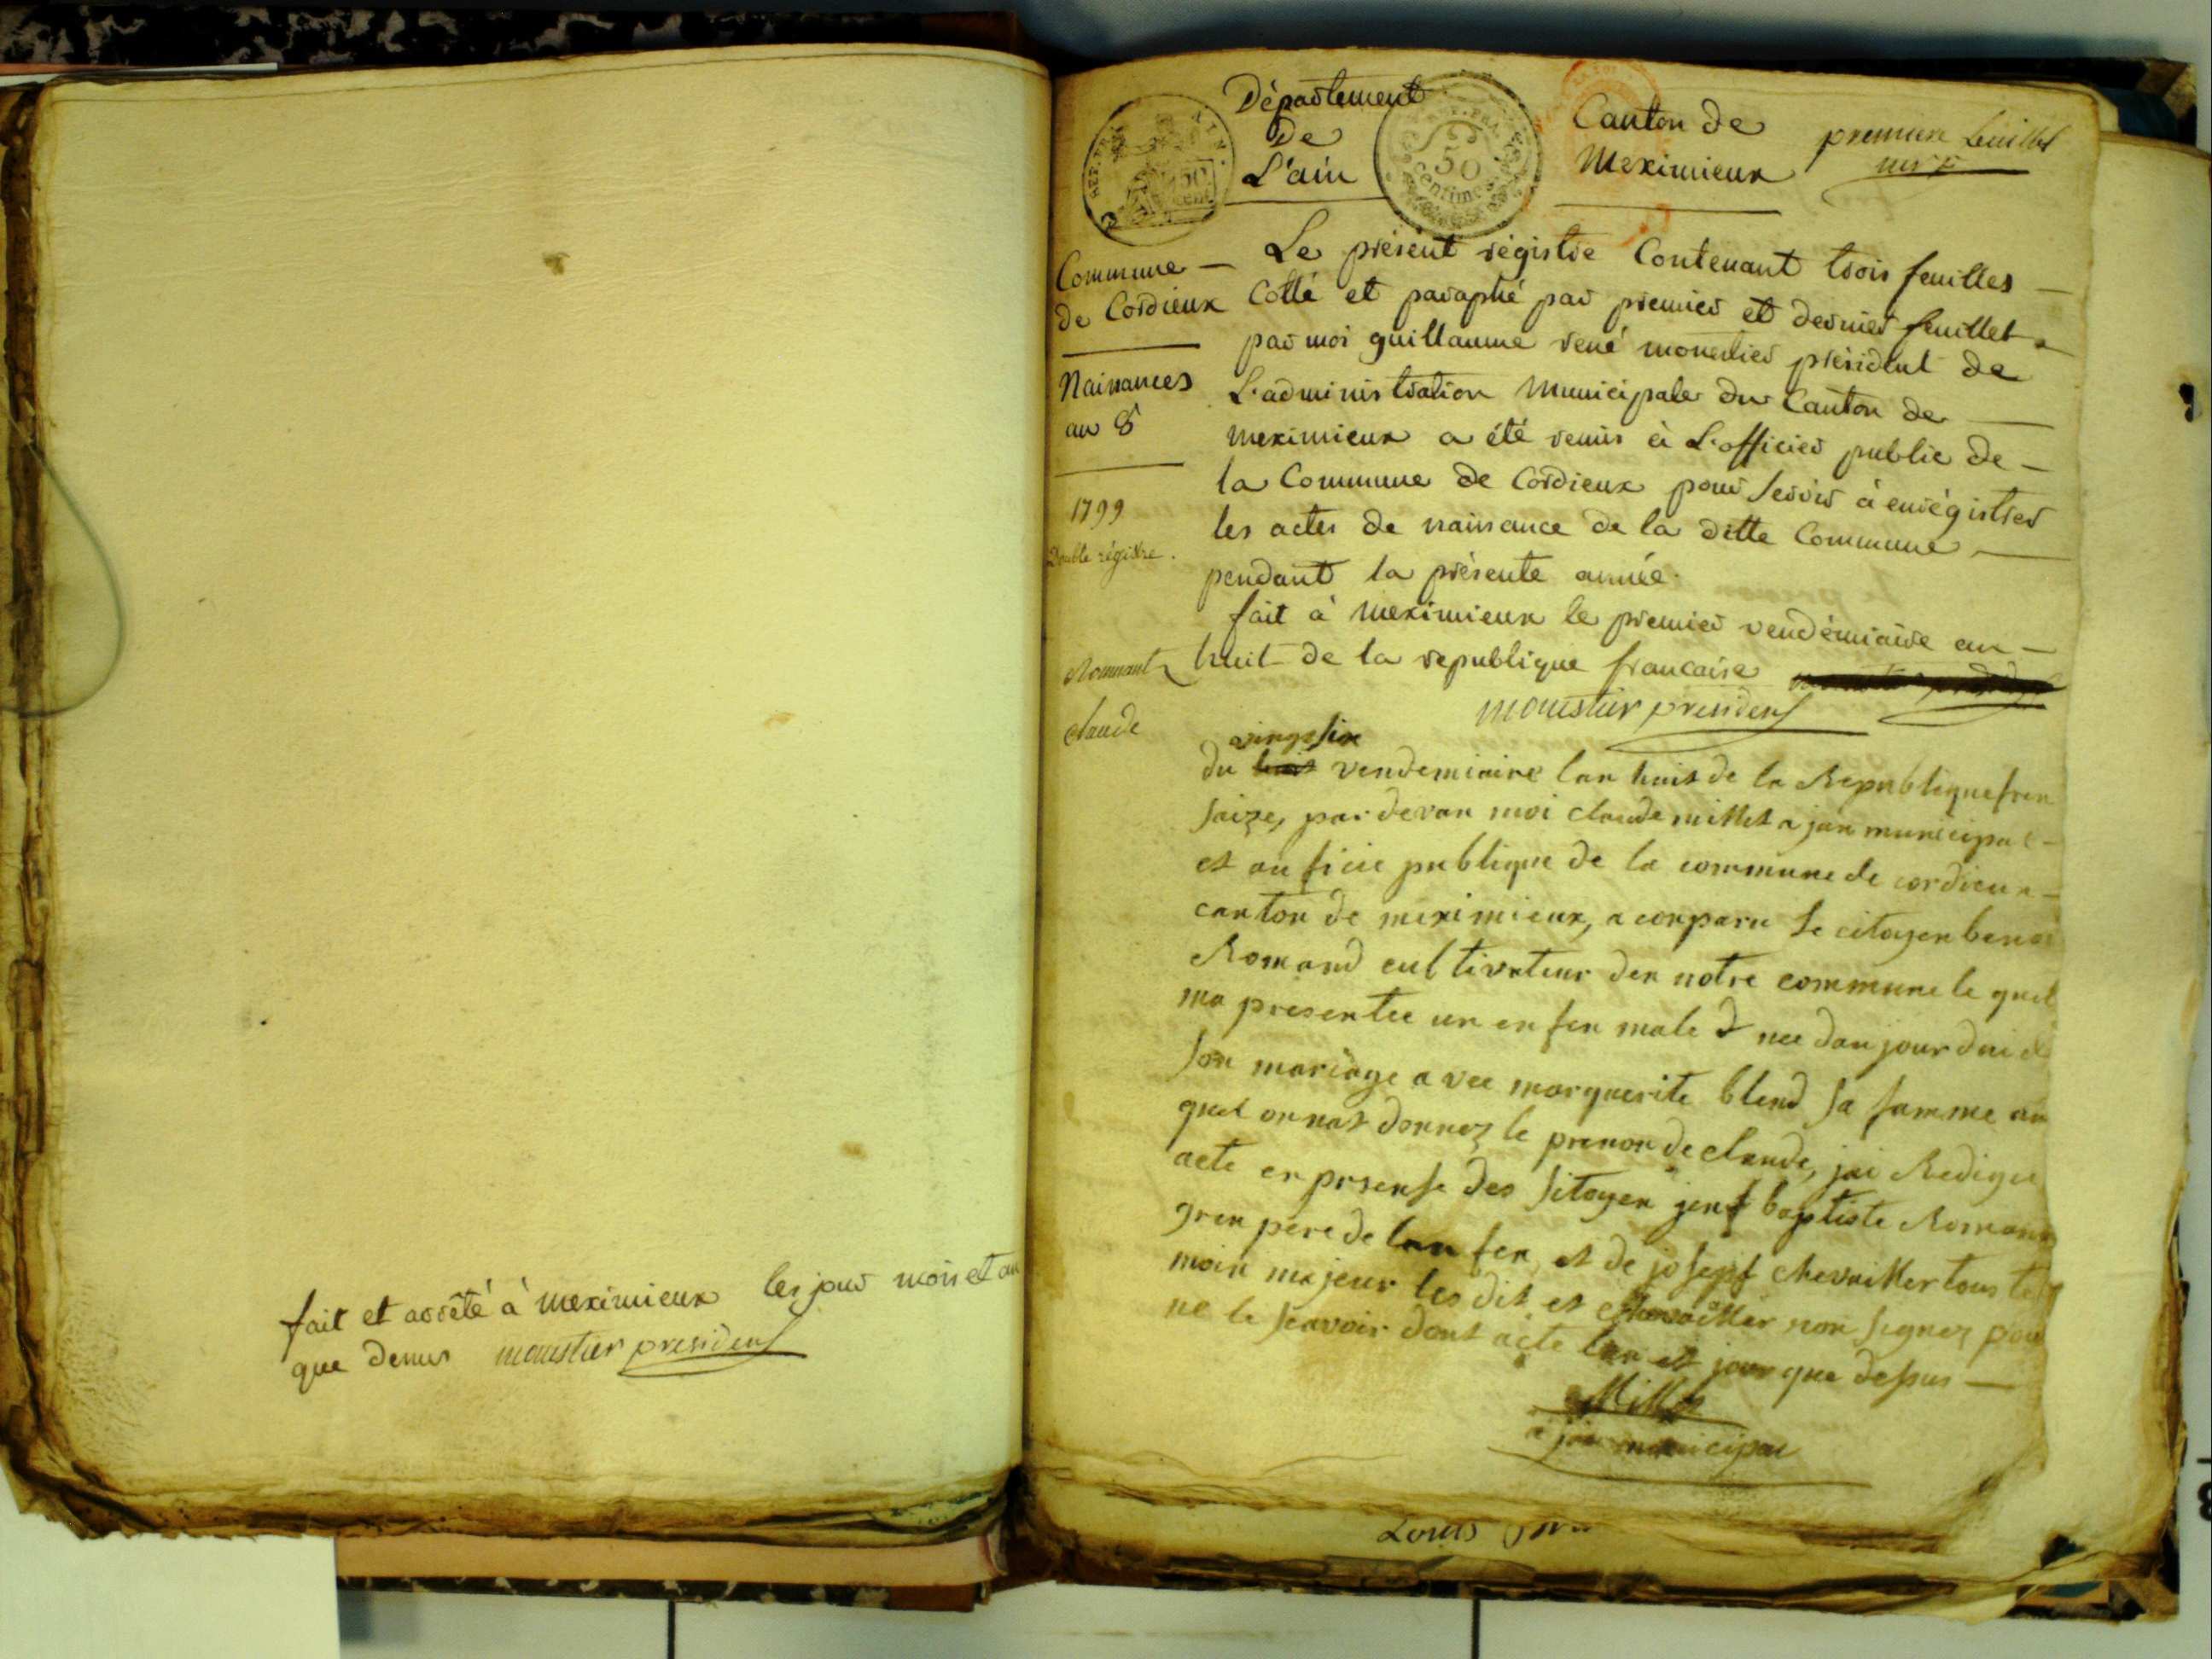 fait et arrêté à meximieux les jour mois et an
que dessus moustier president
Département
De
L'ain
REP. FRA.
50
cent
AIN.
REP. FRA.
50
centimes
Canton de
Meximieux
premiere feuillet
Commune
de Cordieux
Naissances
an 8
1799
Double régistre.
Le présent régistre Contenant trois feuilles
Cotté et paraphé par premier et dernier feuillet
par moi guillaume rené monestier président de
L'administration Municipale du Canton de
meximieux a été remis à L'officier public de
la Commune de Cordieux pour servir à enrégistrer
les actes de naissance de la ditte Commune
pendant la présente année.
fait à meximieux le premier vendémiaire an
huit de la republique francaise
moustier president
Rommant
claude
vingt six
du huit vendemiaire lan huit de la Republique fran
saize, par devan moi claude millet a jan municipal
et au ficie publique de la commune de cordieux
canton de meximieux, a conparu le citoyen benoi
Romand cultivateur den notre commune le quel
ma presentee un en fen male nee dau jour dui de
son mariage a vec marguerite blend sa famme au
quel on nat donnez le prenon de claude, jai Redigee
acte en prsense des sitoyen jent baptiste Romand
gren pere de lan fen, et de joseph chevailler tous te
moin majeur les dit et chevailler non signez pour
ne le scavoir dont acte lan et jour que dessus
Millet
a jan municipal
Louis